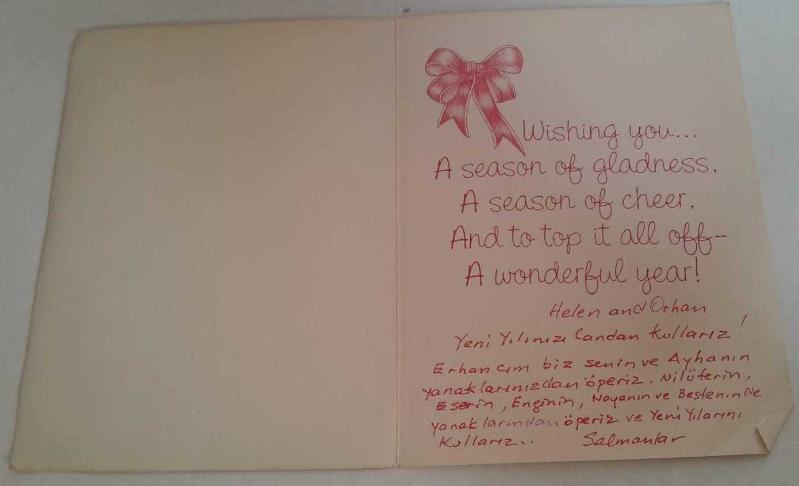 Wishing you...
A season of gladness,
A season of cheer,
And to top it all off-
A wonderful year!
Helen and Orhan
Yeni Yılınızı Candan Kutlarız!
Erhan cım biz senin ve Ayhanın
yanaklarınızdan öperiz. Nilüferin,
Eserin, Enginin, Noyanın ve Bestenin de
yanaklarından öperiz ve Yeni Yıllarını
Kutlarız..
Salmanlar